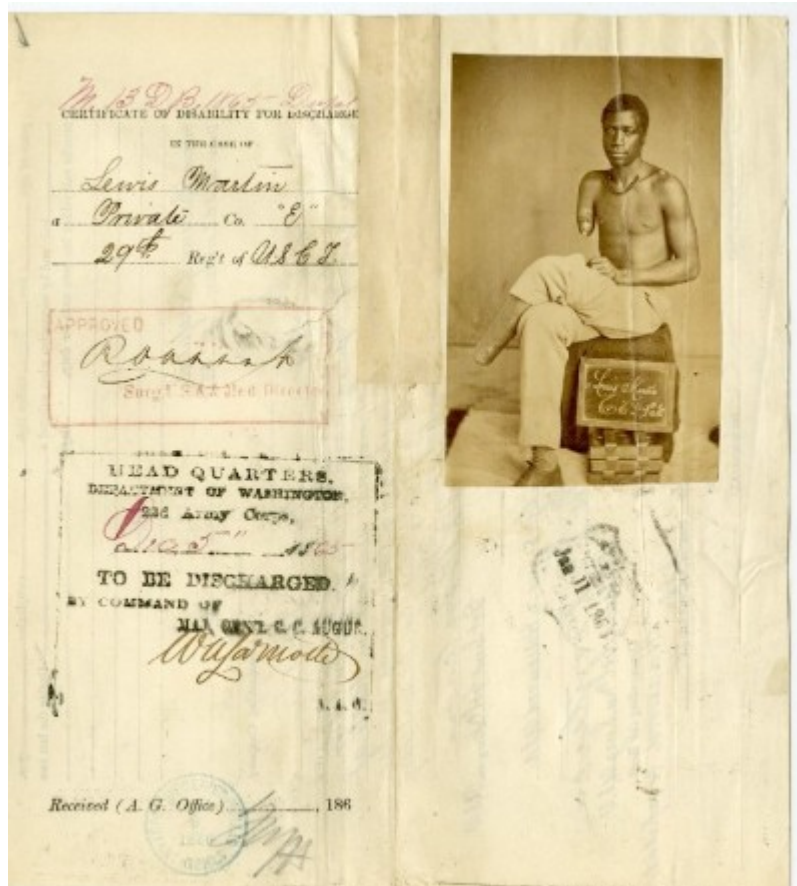 M 13 D B. 1865
CERTIFICATE OF DISABILITY FOR DISCHARGE
IN THE CASE OF
Lewis Martin
a Private Co. "E"
29th Reg't of U S C T.
APPROVED
Surg. U.S.A Med Director
HEAD QUARTERS,
DEPARTMENT OF WASHINGTON,
22d Army Corps,
Dec 5" 1865
TO BE DISCHARGED.
BY COMMAND OF
MAJ. GEN'L C. C. AUGUR.
A. A. G.
Received (A. G. Office) , 186
Lewis Martin
Co E 29
Jan 11